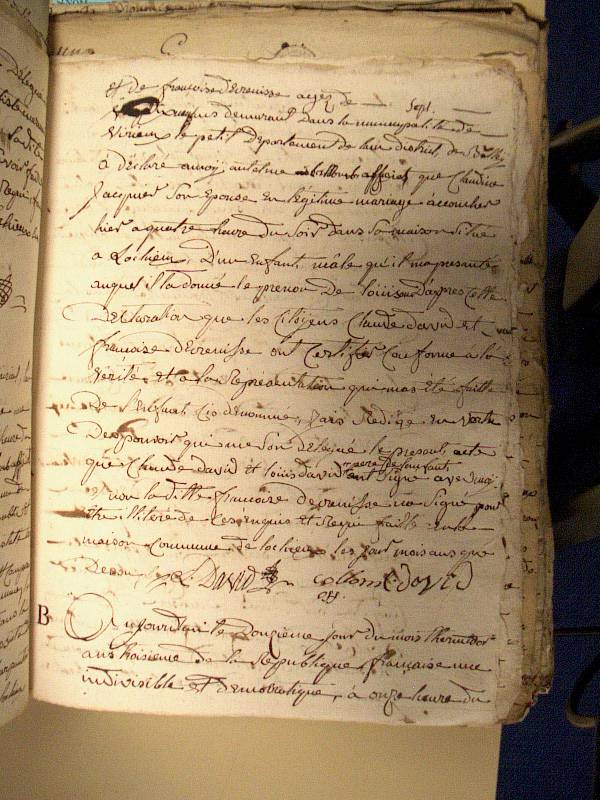 et de françoise devenisse agés de
demeurant dans la municipalité de
Virieux le petit departement de lain district de Belley
a declaré a moy antoine que Claudine
Jacquier Son Epouse En legitime mariage accouchée
hier a quatre heure du Soir dans Sa maison Situé
a Lochieu, D'un Enfant mâle qu'il ma presanté
auquel il la donné le prenom De louis d'apres Cette
Declaration que les Citoyens Claude david et
françoise devenisse ont Certifiée Conforme a la
vérité, et a la Représentation qui mas été faitte
De lenfant Cio denomme, jais Redigé En vertu
Des pouvoir qui me Son delegué le present acte
que Claude david et louis david pere de lanfant
ont Signé avec moy
non la ditte françoise devenisse na Signé pour
être illiteré de ce enquis et Requi faitte En la
maison Commune de lochieu les jour mois ans que
Dessu
L. DAVID C. DAVID
B
Aujourdhui le Douzieme jour du mois thermidor
ans troisieme de la Republique française une
indivisible et démocratique, a onze heure du